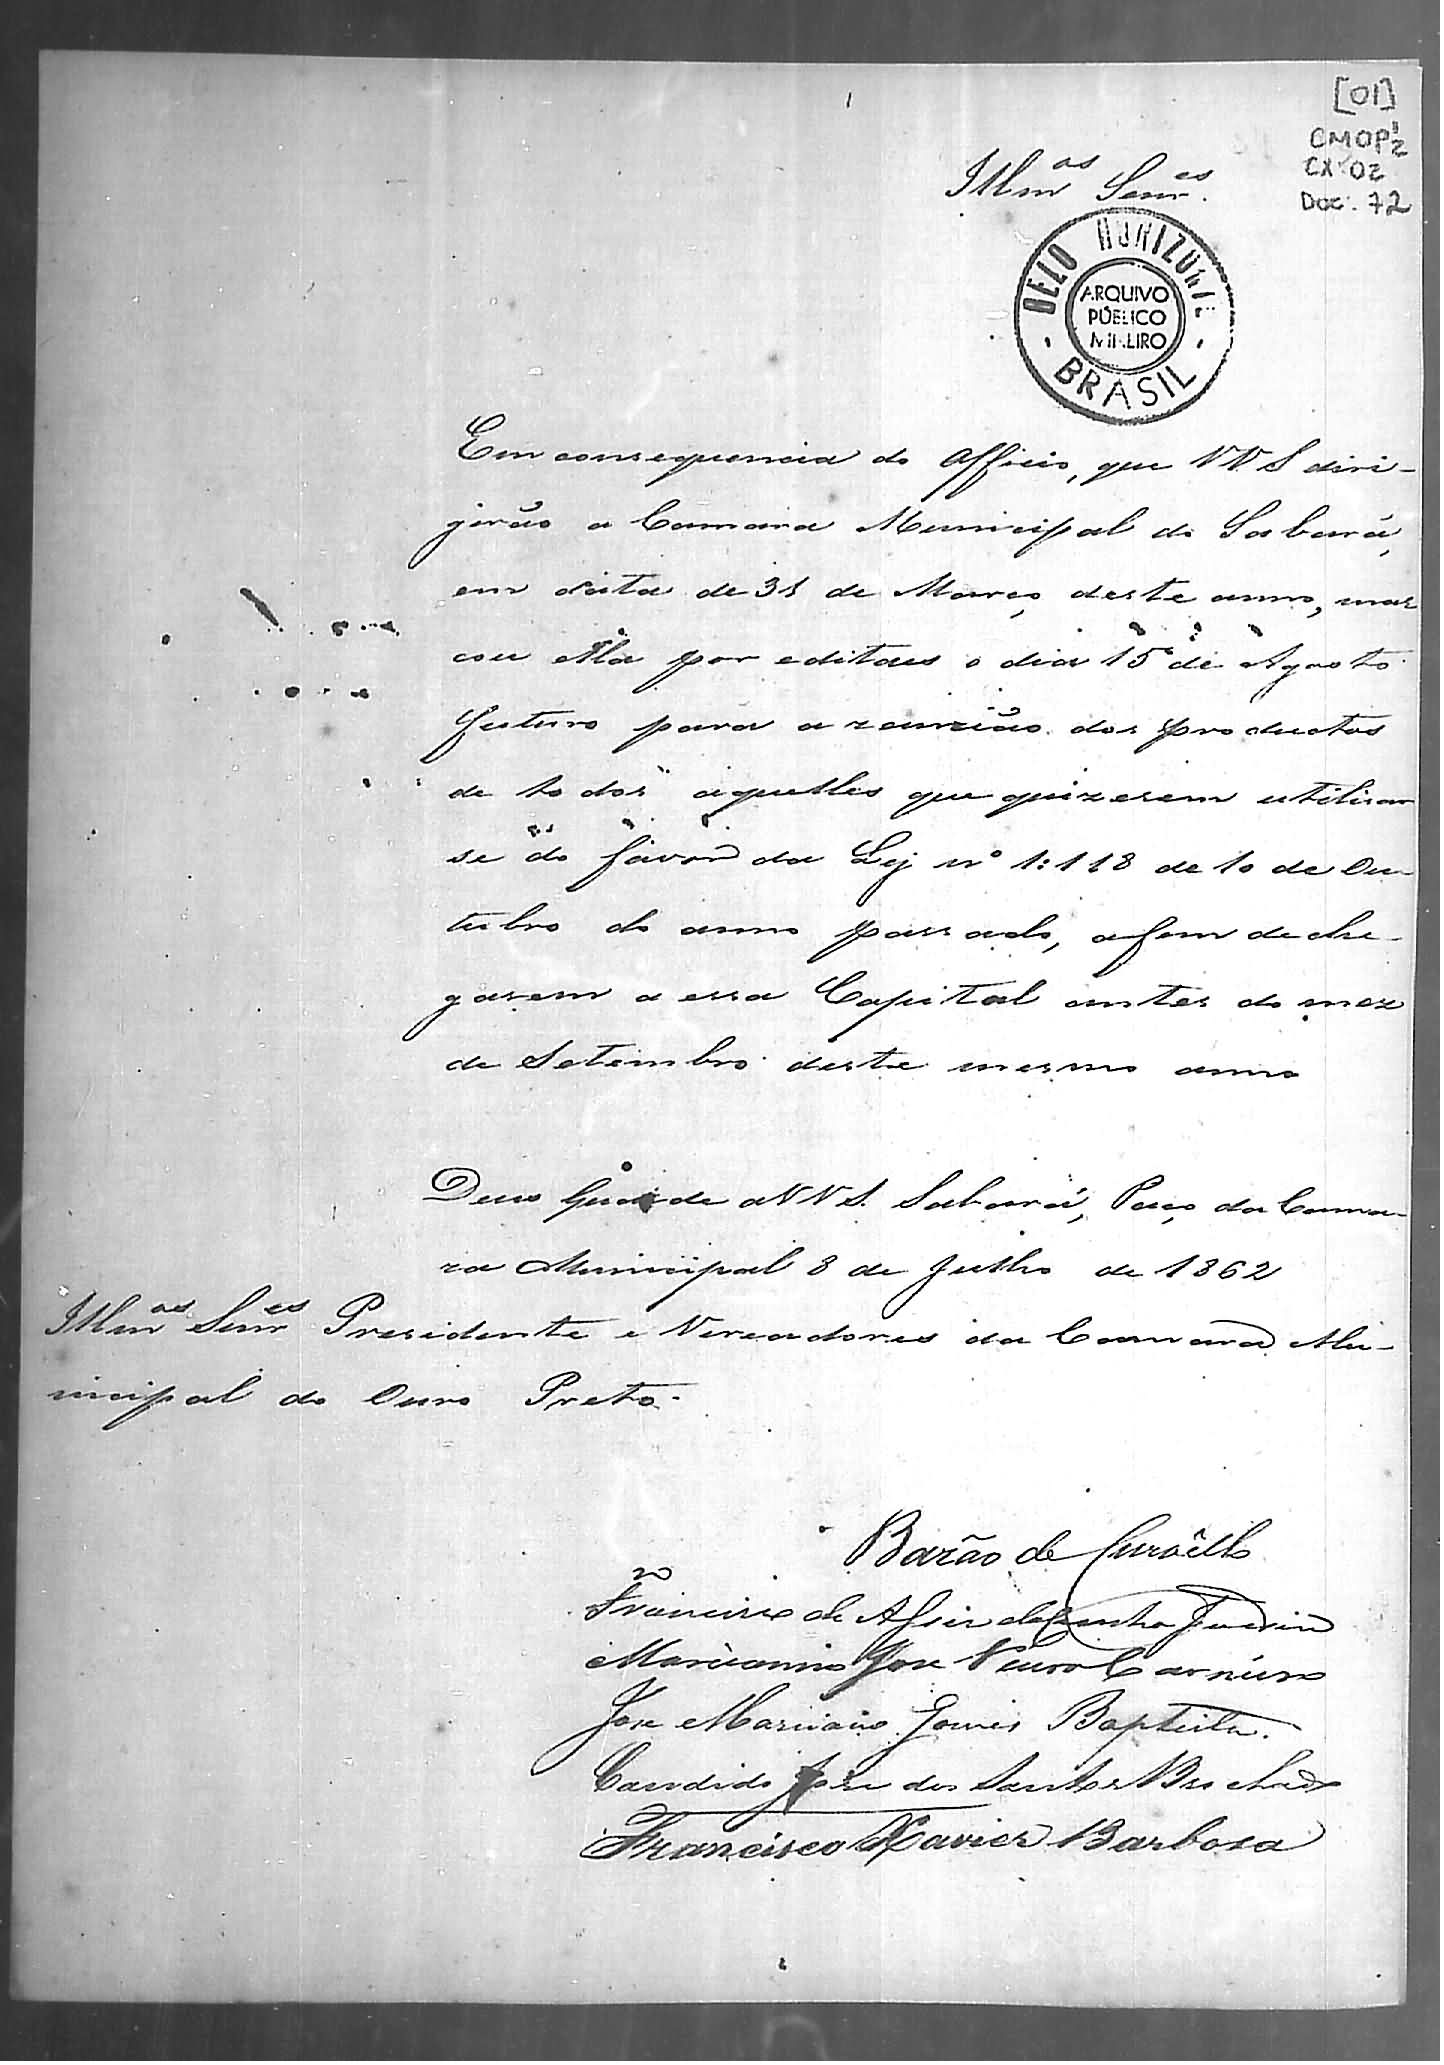 [01]
CMOP 1/2
CX. 02
Doc. 72
Illmos Senres.
BELO HORIZONTE
ARQUIVO
PÚBLICO
MINEIRO
BRASIL
Em consequencia do Officio, que VVS diri-
girão a Camara Municipal do Sabará,
em data de 31 de Março deste anno, mar
cou ella por editaes o dia 15 de Agosto
futuro para a reunião dos productos
de todos aquelles que quizerem utilisar
se do favor da Ley nº 1:118 de 10 de Ou
tubro do anno passado, afim de che-
garem a essa Capital antes do mez
de Setembro deste mesmo anno
Deus Guarde a VVS. Sabará, Paço da Cama-
ra Municipal 8 de Julho de 1862
Illmos Senres Presidente e Vereadores da Camara Mu-
nicipal do Ouro Preto.
Barão de Curvêllo
Francisco de Assis da Junior
Marianno José Carneiro
Jose Marciano Gomes Baptista.
Candido Jose dos Santos Brochado
Francisco Xavier Barbosa